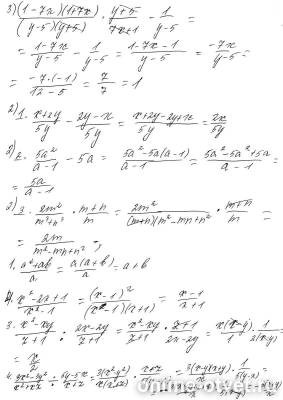 3) (1-7x)(1+7x)/((y-5)(y+5)) · (y+5)/(7x+1) - 1/(y-5) =
= (1-7x)/(y-5) - 1/(y-5) = (1-7x-1)/(y-5) = -7x/(y-5) =
= -7·(-1)/(12-5) = 7/7 = 1
2) 1. (x+2y)/5y - (2y-x)/5y = (x+2y-2y+x)/5y = 2x/5y
2) 2. 5a²/(a-1) - 5a = (5a²-5a(a-1))/(a-1) = (5a²-5a²+5a)/(a-1)
= 5a/(a-1)
2) 3. 2m²/(m³+n³) · (m+n)/m = 2m²/((m+n)(m²-mn+n²)) · (m+n)/m =
= 2m/(m²-mn+n²);
1. (a²+ab)/a = a(a+b)/a = a+b
(x²-2x+1)/(x²-1) = (x-1)²/((x-1)(x+1)) = (x-1)/(x+1)
3. (x²-xy)/(z+1) : (2x-2y)/(z+1) = (x²-xy)/(z+1) · (z+1)/(2x-2y) = x(x-y)/1 · 1/(2(x-y))
= x/2
4.
Online-otvet.ru